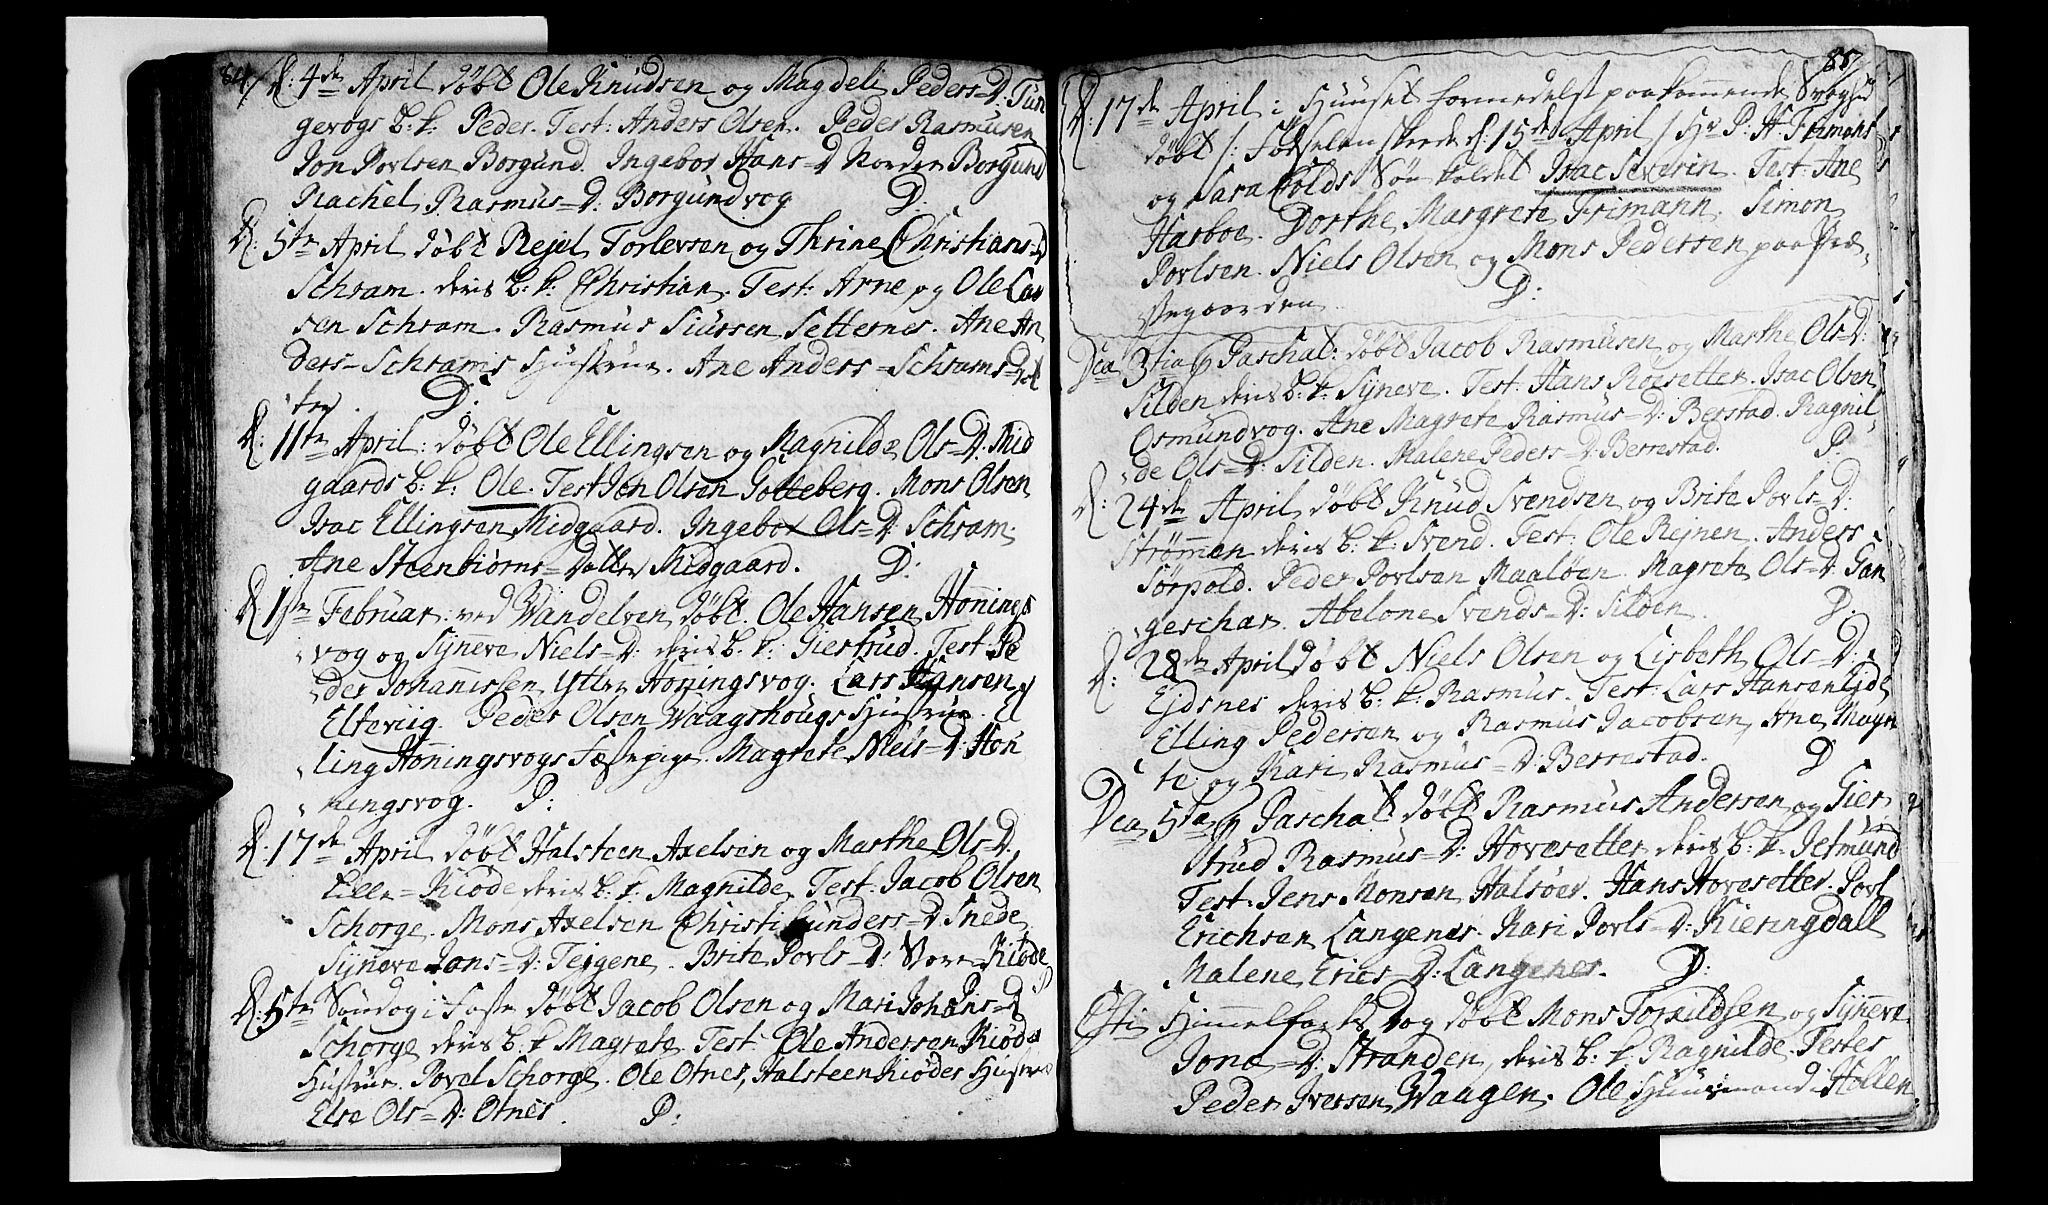 84
d: 4de April døbt Ole Knudsen og Magdeli Peders=D: Tun
gevogs b: k: Peder. Test: Anders Olsen. Peder Rasmusen
Jon Povlsen Borgund. Ingebor Hans=D Norden Borgund
Rachel Rasmus=D: Borgundvog D.
d: 5te April døbt Rejel Torlevsen og Thrine Christians=D
Schram. deris b: k: Christian. Test: Arne og Ole Lar
sen Schram. Rasmus Siursen Setternes. Ane An
ders=Schrams Hustrue. Ane Anders=Schrams=Dot
ter. D:
d: 11te April: døbt Ole Ellingsen og Magnilde Ols=D: Mid
gaards b: k: Ole. Test Jon Olsen Gotteberg. Mons Olsen
Isac Ellingsen Midgaard. Ingebor Ols=D: Schram.
Ane Steenbiørns=Datter Midgaard. D:
d: 1ste Februar: ved Vandelven døbt. Ole Hansen Honnings
vog og Synneve Niels=D: deris b: k: Giertrud. Test: Pe
der Johannissen Ytter Honningsvog. Lars Hansen
Elteviig. Peder Olsen Waagshougs Hustrue. El
ling Honningsvogs Festepige. Magrete Niels=D: Hon
ningsvog. D:
d: 17de April døbt Halsteen Axelsen og Marthe Ols=D.
Kiøde deris b: k: Magnilde. Test: Jacob Olsen
Schorge. Mons Axelsen Christi Gunders=D. Snede
Synneve Jons=D: Teigene. Brite Povls=D: Kiøde
D
d: 5te Søndag i Faste døbt Jacob Olsen og Mari Johans=D
Schorge deris b: k Magrete. Test: Ole Andersen Kiøde
Hustrue. Povel Schorge. Ole Otnes, Halsteen Kiødes Hustrue
Else Ols=D: Otnes. D:
85
d: 17de April i Huuset formedelst paakommende Svaghed
døbt /: Fødselen skeede d: 15de April / Hr P. H. Frimans
og Sara Colds Søn kaldet Isac Severin. Test: Ane
Harboe. Dorthe Margrete Frimann. Simon
Povlsen. Niels Olsen og Mons Pedersen paa Præ
stegaarden. D:
Dca 3tia p Paschat: døbt Jacob Rasmusen og Marthe Ols=D:
Silden deris b: k: Synneve. Test: Hans Roesetter. Isac Olsen
Osmundvog. Ane Magrete Rasmus=D: Berstad. Ragnil
de Ols=D: Silden. Malene Peders=D: Berrestad. D.
d: 24de April døbt Knud Svendsen og Brite Povls=D:
Strømmen deris b: k: Svend. Test: Ole Rejnen. Anders
Sørpold. Peder Povlsen Maaløen. Magrete Ols=D: Gan
geschar. Abelone Svends=D: Silden. D.
d: 28de April døbt Niels Olsen og Lisbeth Ols=D:
Ejdsnes deris b: k: Rasmus. Test: Lars Hansen Ejde
Elling Pedersen og Rasmus Jacobsen, Ane Magre
te og Kari Rasmus=D: Berrestad. D
Dca 5ta p Paschat døbt Rasmus Andersen og Gier
trud Rasmus=D: Hovesetter deris b: k: Jetmund
Test: Jens Monsen Halsøer. Hans Hovesetter. Povl
Erichsen Langenes. Kari Povls=D: Kieringdall
Malene Erics=D: Langenes. D:
Christi Himmelfarts Dag døbt Mons Torkildsen og Synneve
Jonæ=D: Stranden, deris b: k: Ragnilde. Testes
Peder Iversen Waagen. Ole Huusmand i Hollen